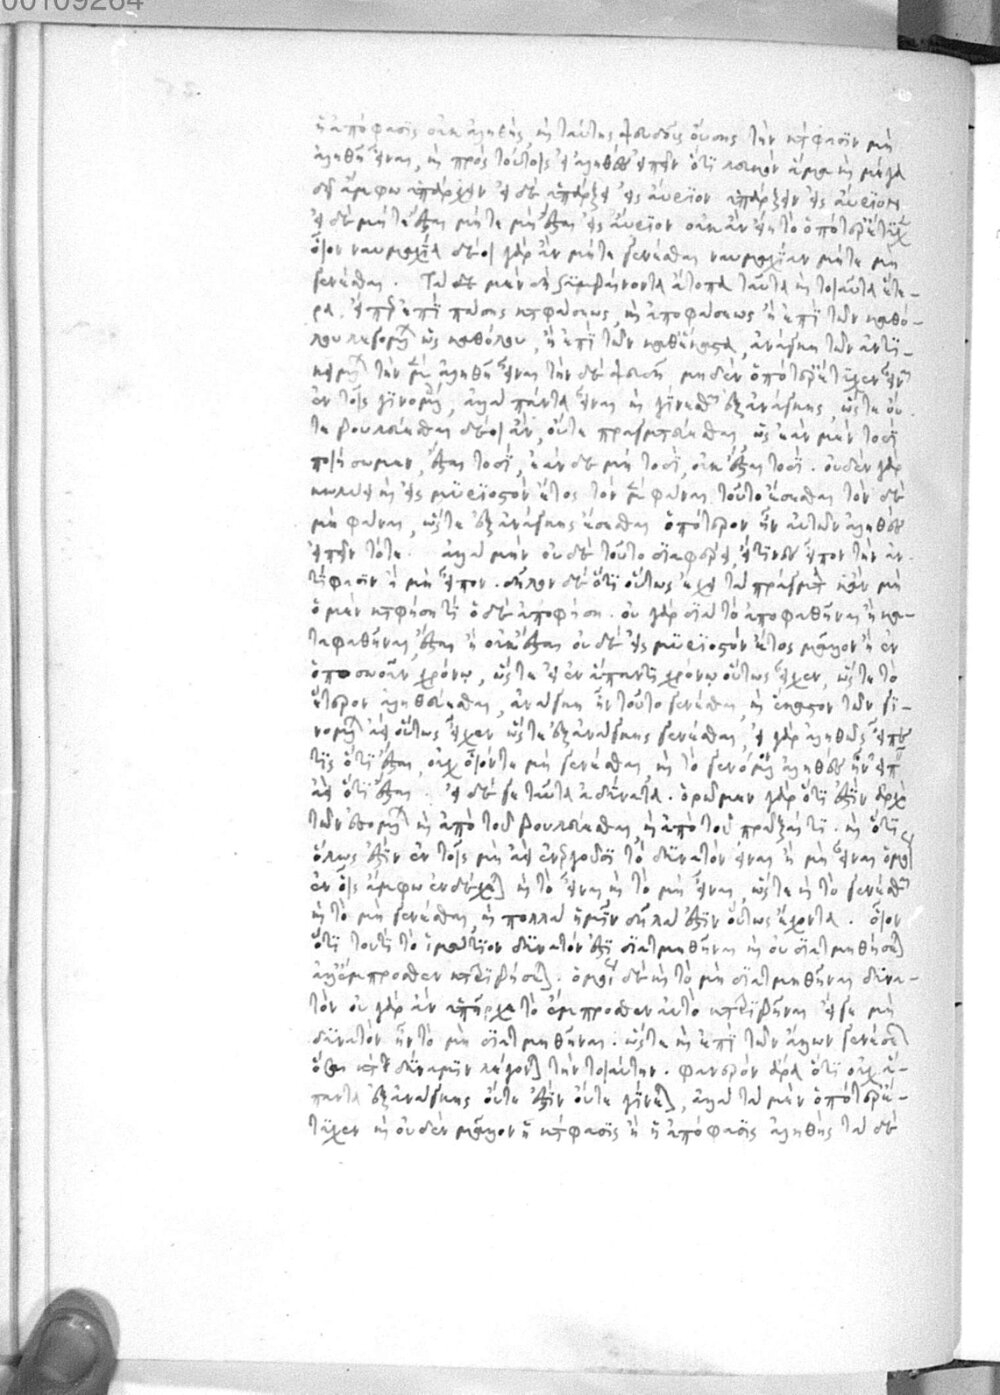 00109264
ἡ ἀπόφασις οὐκ ἀληθὴς, καὶ ταύτης ψευδοῦς οὔσης τὴν κατάφασιν μὴ
ἀληθῆ εἶναι, καὶ πρὸς τούτοις εἰ ἀληθὲς εἰπεῖν ὅτι λευκὸν ἅμα καὶ μέγα
δεῖ ἄμφω ὑπάρχειν εἰ δὲ ὑπάρξει εἰς αὔριον ὑπάρξειν εἰς αὔριον
εἰ δὲ μήτε ἔσται μήτε μὴ ἔσται εἰς αὔριον οὐκ ἂν εἴη τὸ ὁπότερ' ἔτυχε
οἷον ναυμαχία δέοι γὰρ ἂν μήτε γενέσθαι ναυμαχίαν μήτε μὴ
γενέσθαι. Τὰ μὲν δὴ συμβαίνοντα ἄτοπα ταῦτα καὶ τοιαῦτα ἕτε-
ρα. εἴπερ ἐπὶ πάσης καταφάσεως καὶ ἀποφάσεως ἢ ἐπὶ τῶν καθό-
λου λεγομένων ὡς καθόλου, ἢ ἐπὶ τῶν καθέκαστα, ἀνάγκη τῶν ἀντι-
κειμένων τὴν μὲν ἀληθῆ εἶναι τὴν δὲ ψευδῆ μηδὲν ὁπότερ' ἔτυχεν εἶναι
ἐν τοῖς γινομένοις, ἀλλὰ πάντα εἶναι καὶ γίνεσθαι ἐξ ἀνάγκης, ὥστε οὔ-
τε βουλεύεσθαι δέοι ἂν, οὔτε πραγματεύεσθαι, ὡς ἐὰν μὲν τοδὶ
ποιήσωμεν, ἔσται τοδὶ, ἐὰν δὲ μὴ τοδὶ, οὐκ ἔσται τοδί. οὐδὲν γὰρ
κωλύει καὶ εἰς μυριοστὸν ἔτος τὸν μὲν φάναι τοῦτο ἔσεσθαι τὸν δὲ
μὴ φάναι, ὥστε ἐξ ἀνάγκης ἔσεσθαι ὁπότερον ἦν αὐτῶν ἀληθὲς
εἰπεῖν τότε. ἀλλὰ μὴν οὐδὲ τοῦτο διαφέρει, εἴ τινες εἶπον τὴν ἀν-
τίφασιν ἢ μὴ εἶπον. δῆλον δὲ ὅτι οὕτως ἔχει τὰ πράγματα κἂν μὴ
ὁ μὲν καταφήσῃ τι ὁ δὲ ἀποφήσῃ. οὐ γὰρ διὰ τὸ ἀποφαθῆναι ἢ κα-
ταφαθῆναι, ἔσται ἢ οὐκ ἔσται οὐδὲ εἰς μυριοστὸν ἔτος μᾶλλον ἢ ἐν
ὁποσῳοῦν χρόνῳ, ὥστε εἰ ἐν ἅπαντι χρόνῳ οὕτως εἶχεν, ὥστε τὸ
ἕτερον ἀληθεύεσθαι, ἀνάγκη ἦν τοῦτο γενέσθαι, καὶ ἕκαστον τῶν γι-
νομένων ἀεὶ οὕτως ἔχειν ὥστε ἐξ ἀνάγκης γενέσθαι, εἰ γὰρ ἀληθῶς εἶπέ
τις ὅτι ἔσται, οὐχ οἷόν τε μὴ γενέσθαι, καὶ τὸ γενόμενον ἀληθὲς ἦν εἰπεῖν
ἀεὶ ὅτι ἔσται. εἰ δὲ γε ταῦτα ἀδύνατα. ὁρῶμεν γὰρ ὅτι ἔστιν ἀρχὴ
τῶν ἐσομένων καὶ ἀπὸ τοῦ βουλεύεσθαι, καὶ ἀπὸ τοῦ πρᾶξαί τι. καὶ ὅτι
ὅλως ἔστιν ἐν τοῖς μὴ ἀεὶ ἐνεργοῦσι τὸ δυνατὸν εἶναι ἢ μὴ εἶναι ὁμοίως
ἐν οἷς ἄμφω ἐνδέχεται καὶ τὸ εἶναι καὶ τὸ μὴ εἶναι, ὥστε καὶ τὸ γενέσθαι
καὶ τὸ μὴ γενέσθαι, καὶ πολλὰ ἡμῖν δῆλά ἐστιν οὕτως ἔχοντα. οἷον
ὅτι τουτὶ τὸ ἱμάτιον δυνατόν ἐστι διατμηθῆναι καὶ οὐ διατμηθήσεται
ἀλλ' ἔμπροσθεν κατατριβήσεται. ὁμοίως δὲ καὶ τὸ μὴ διατμηθῆναι δυνα-
τὸν οὐ γὰρ ἂν ὑπῆρχε τὸ ἔμπροσθεν αὐτὸ κατατριβῆναι εἴ γε μὴ
δυνατὸν ἦν τὸ μὴ διατμηθῆναι. ὥστε καὶ ἐπὶ τῶν ἄλλων γενέσεων
ὅσαι κατὰ δύναμιν λέγονται τὴν τοιαύτην. φανερὸν ἄρα ὅτι οὐχ ἅ-
παντα ἐξ ἀνάγκης οὔτε ἔστιν οὔτε γίνεται, ἀλλὰ τὰ μὲν ὁπότερ' ἔ-
τυχεν καὶ οὐδὲν μᾶλλον ἡ κατάφασις ἢ ἡ ἀπόφασις ἀληθὴς τὰ δὲ